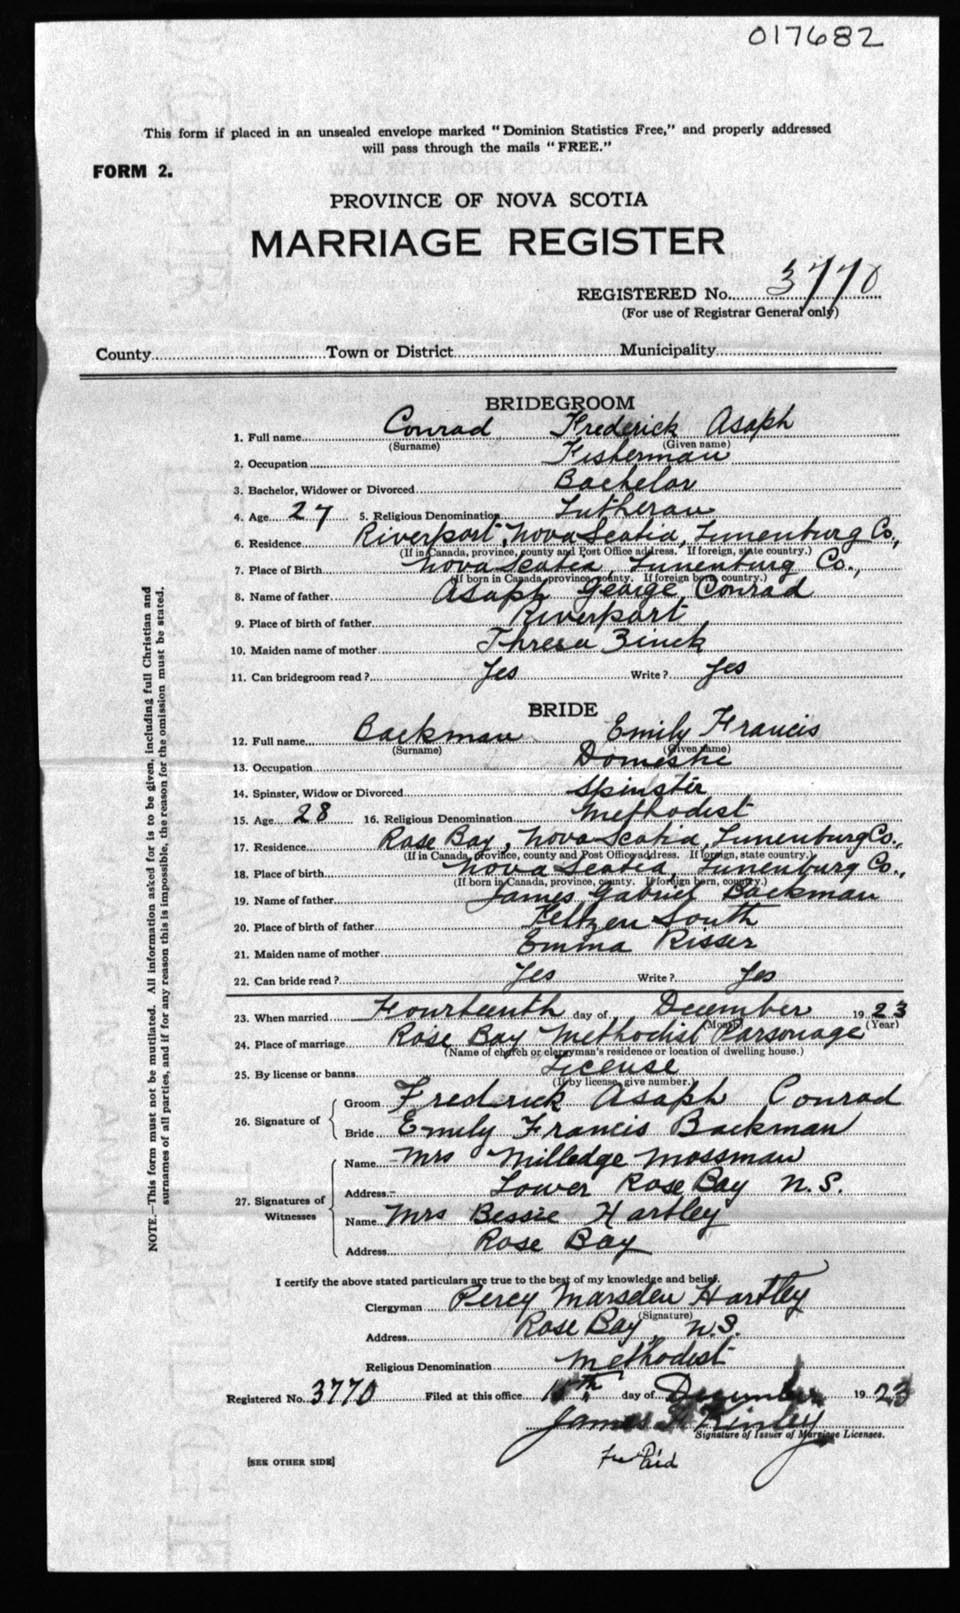 017682
This form if placed in an unsealed envelope marked "Dominion Statistics Free," and properly addressed
will pass through the mails "FREE."
FORM 2.
PROVINCE OF NOVA SCOTIA
MARRIAGE REGISTER
REGISTERED No. 3770
(For use of Registrar General only)
County Town or District Municipality
BRIDEGROOM
1. Full name Conrad Frederick Asaph
(Surname) (Given name)
2. Occupation Fisherman
3. Bachelor, Widower or Divorced Bachelor
4. Age 27 5. Religious Denomination Lutheran
6. Residence Riverport, Nova Scotia, Lunenburg Co.,
(If in Canada, province, county and Post Office address. If foreign, state country.)
7. Place of Birth Nova Scotia, Lunenburg Co.,
(If born in Canada, province, county. If foreign born, country.)
8. Name of father Asaph George Conrad
9. Place of birth of father Riverport
10. Maiden name of mother Thresa Zinck
11. Can bridegroom read? Yes Write? Yes
BRIDE
12. Full name Backman Emily Francis
(Surname) (Given name)
13. Occupation Domestic
14. Spinster, Widow or Divorced Spinster
15. Age 28 16. Religious Denomination Methodist
17. Residence Rose Bay, Nova Scotia, Lunenburg Co.,
(If in Canada, province, county and Post Office address. If foreign, state country.)
18. Place of birth Nova Scotia, Lunenburg Co.,
(If born in Canada, province, county. If foreign born, country.)
19. Name of father James Gabriel Backman
20. Place of birth of father Feltzen South
21. Maiden name of mother Emma Risser
22. Can bride read? Yes Write? Yes
23. When married Fourteenth day of December 1923
(Month) (Year)
24. Place of marriage Rose Bay Methodist Parsonage
(Name of church or clergyman's residence or location of dwelling house.)
25. By license or banns License
(If by license, give number.)
26. Signature of Groom Fredrick Asaph Conrad
Bride Emily Francis Backman
27. Signatures of Witnesses Name Mrs Milledge Mossman
Address Lower Rose Bay N.S.
Name Mrs Bessie Hartley
Address Rose Bay
I certify the above stated particulars are true to the best of my knowledge and belief.
Clergyman Percy Marsden Hartley
(Signature)
Address Rose Bay, N.S.
Religious Denomination Methodist
Registered No. 3770 Filed at this office day of December 1923
James Kinley
Signature of Issuer of Marriage Licenses.
[SEE OTHER SIDE] Paid
NOTE.—This form must not be mutilated. All information asked for is to be given, including full Christian and
surnames of all parties, and if for any reason this is impossible, the reason for the omission must be stated.